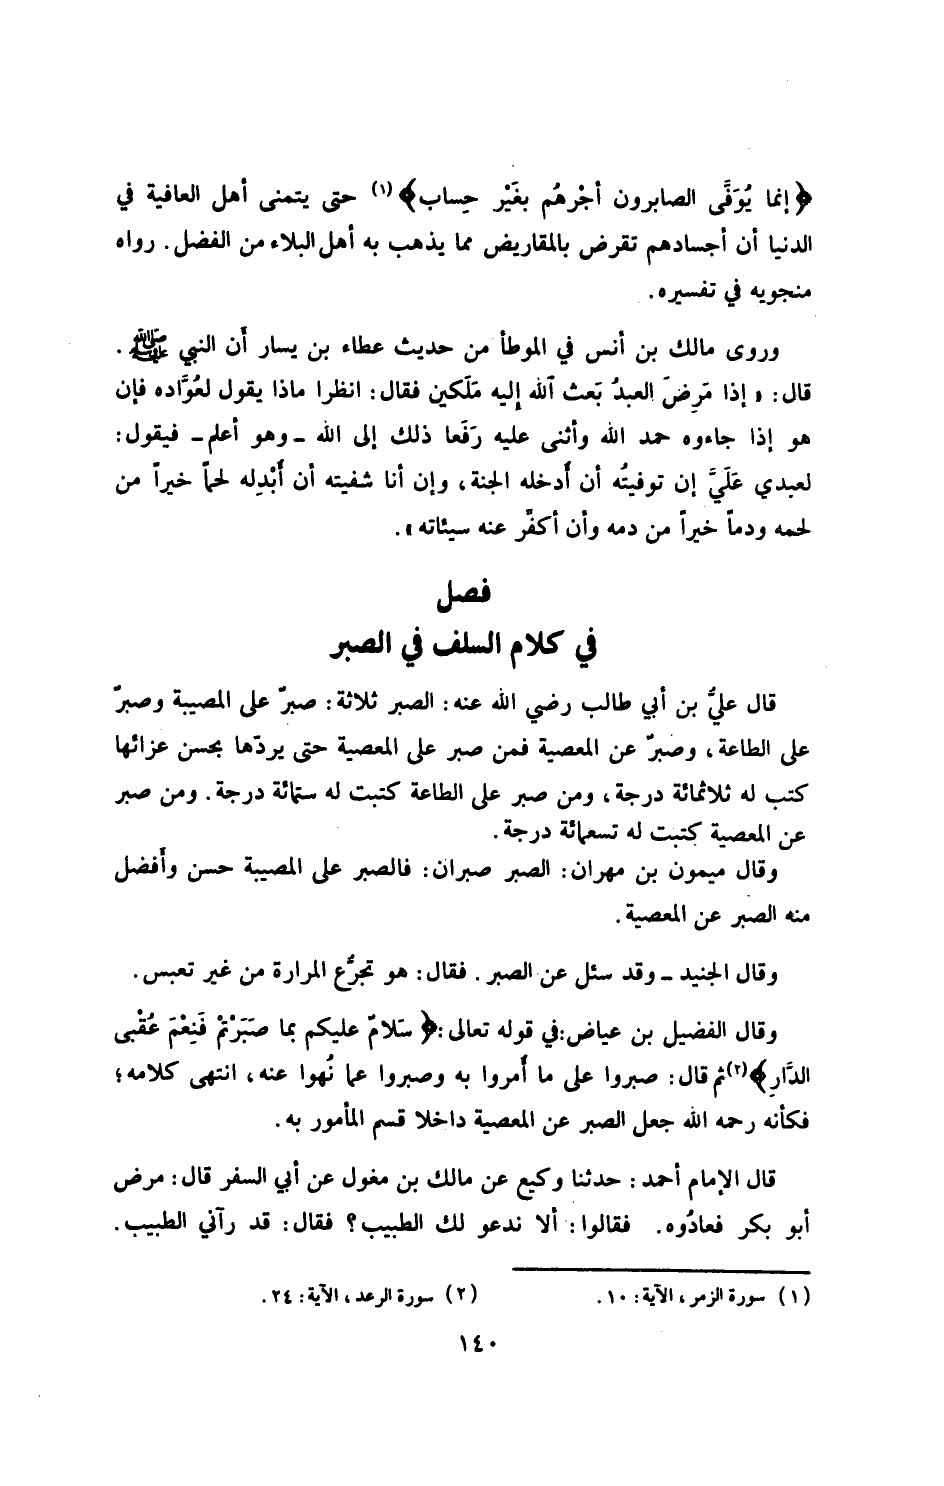 ﴿ إنما يُوَفَّى الصابرون أجْرهُم بغَيْر حِساب﴾(١) حتى يتمنى أهل العافية في
الدنيا أن أجسادهم تقرض بالمقاريض مما يذهب به أهل البلاء من الفضل. رواه
منجويه في تفسيره.
وروى مالك بن أنس في الموطأ من حديث عطاء بن يسار أن النبي ﷺ.
قال: « إذا مَرِضَ العبدُ بَعث ٱلله إليه مَلَكين فقال: انظرا ماذا يقول لعُوَّاده فإن
هو إذا جاءوه حمد الله وأثنى عليه رَفَعا ذلك إلى الله ـ وهو أعلم ـ فيقول:
لعبدي عَلَيَّ إن توفيتُه أن أدخله الجنة، وإن أنا شفيته أن أبْدِله لحماً خيراً من
لحمه ودماً خيراً من دمه وأن أكفِّر عنه سيئاته ».
فصل
في كلام السلف في الصبر
قال عليُّ بن أبي طالب رضي الله عنه: الصبر ثلاثة: صبرٌ على المصيبة وصبرٌ
على الطاعة، وصبرٌ عن المعصية فمن صبر على المعصية حتى يردّها بحسن عزائها
كتب له ثلاثمائة درجة، ومن صبر على الطاعة كتبت له ستمائة درجة. ومن صبر
عن المعصية كتبت له تسعمائة درجة.
وقال ميمون بن مهران: الصبر صبران: فالصبر على المصيبة حسن وأفضل
منه الصبر عن المعصية.
وقال الجنيد ـ وقد سئل عن الصبر. فقال: هو تجرُّع المرارة من غير تعبس.
وقال الفضيل بن عياض: في قوله تعالى: ﴿ سَلامٌ عليكم بما صَبَرْتمْ فَنِعْمَ عُقْبى
الدَّارِ﴾(٢) ثم قال: صبروا على ما أمروا به وصبروا عما نُهوا عنه، انتهى كلامه؛
فكأنه رحمه الله جعل الصبر عن المعصية داخلا قسم المأمور به.
قال الإمام أحمد: حدثنا وكيع عن مالك بن مغول عن أبي السفر قال: مرض
أبو بكر فعادُوه. فقالوا: ألا ندعو لك الطبيب؟ فقال: قد رآني الطبيب.
(١) سورة الزمر، الآية: ١٠. (٢) سورة الرعد، الآية: ٢٤.
١٤٠